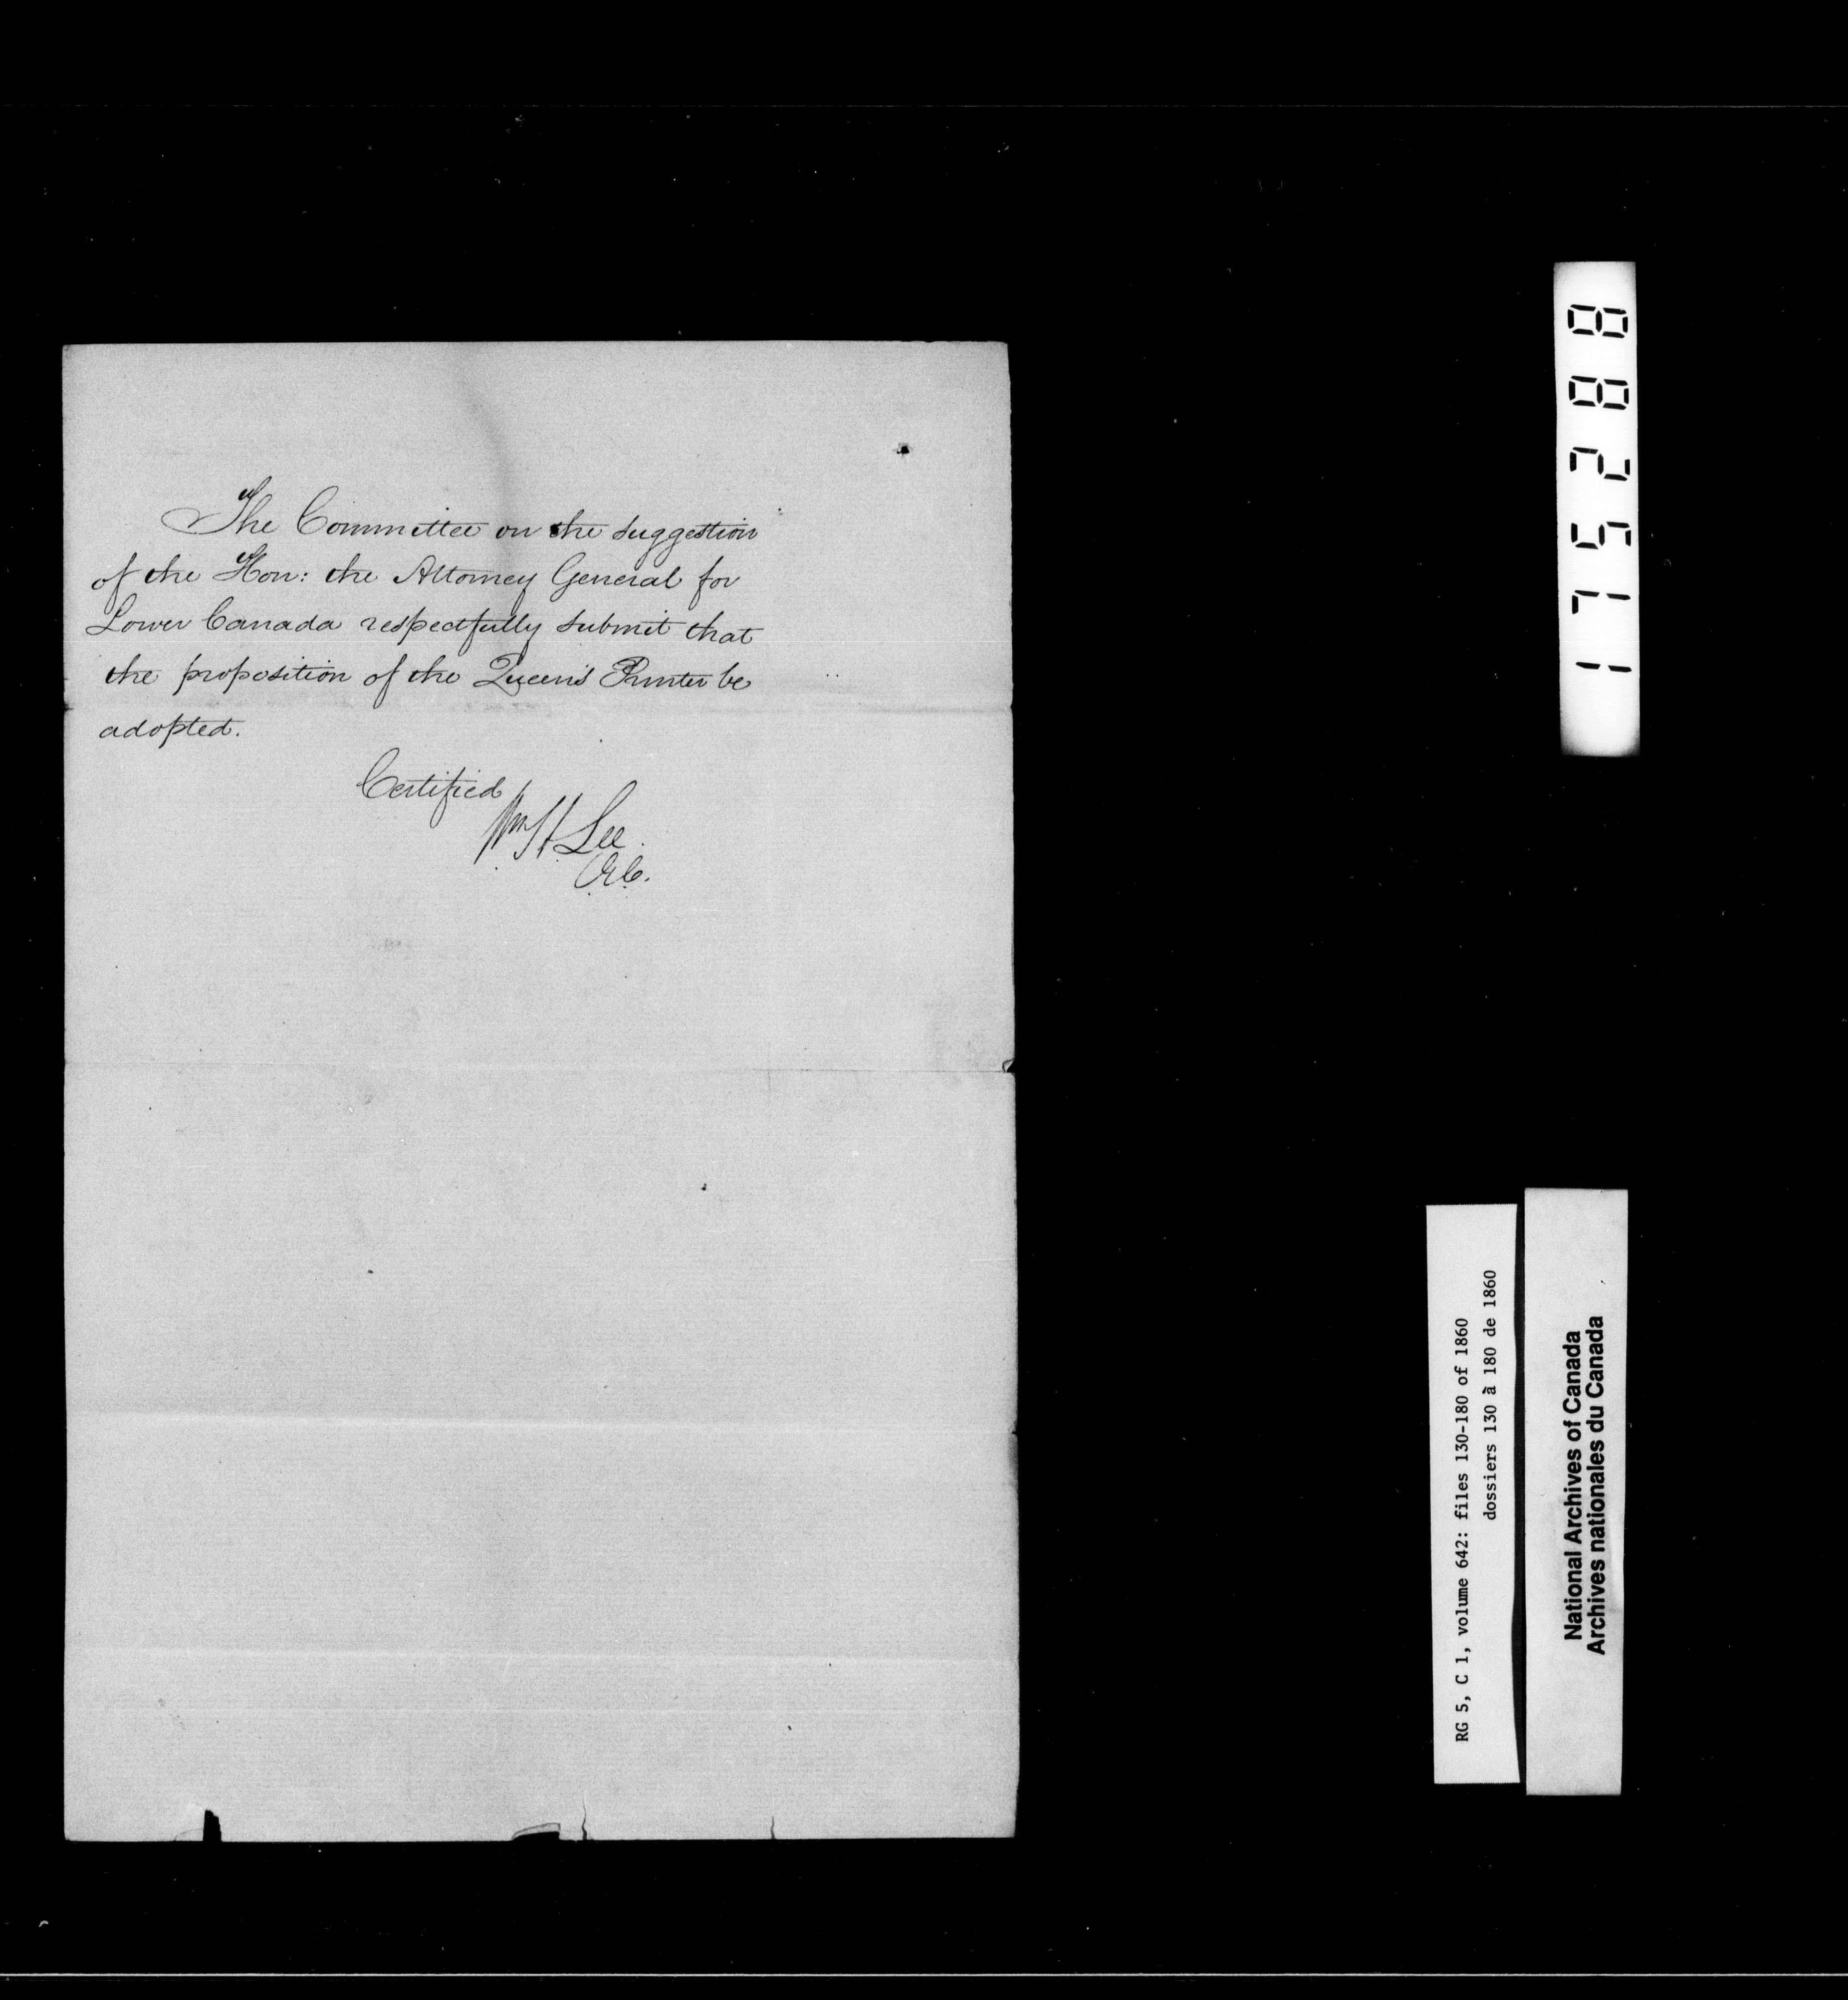 The Committee on the suggestion
of the Hon: the Attorney General for
Lower Canada respectfully submit that
the proposition of the Queen's Printer be
adopted.
Certified
Wm H Lee.
C.E.C.
175288
RG 5, C 1, volume 642: files 130-180 of 1860
dossiers 130 à 180 de 1860
National Archives of Canada
Archives nationales du Canada